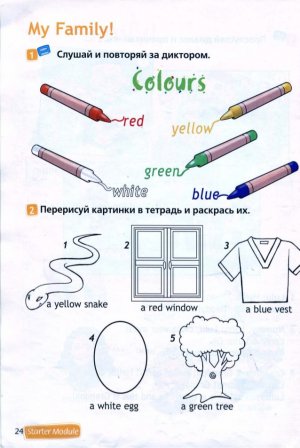 My Family!
1 Слушай и повторяй за диктором.
Colours
red
yellow
green
white
blue
2 Перерисуй картинки в тетрадь и раскрась их.
1 2 3
a yellow snake a red window a blue vest
4 5
a white egg a green tree
24 Starter Module